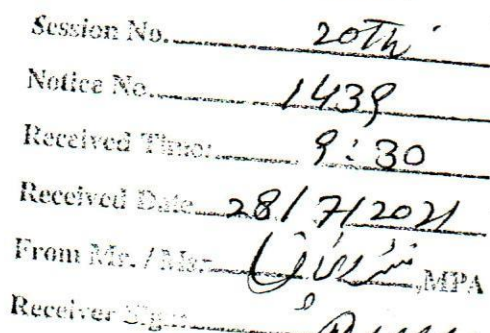 Session No. 20th
Notice No. 1439
Received Time: 9:30
Received Date 28/7/2021
From Mr. / Ms: ,MPA
Receiver Sign: